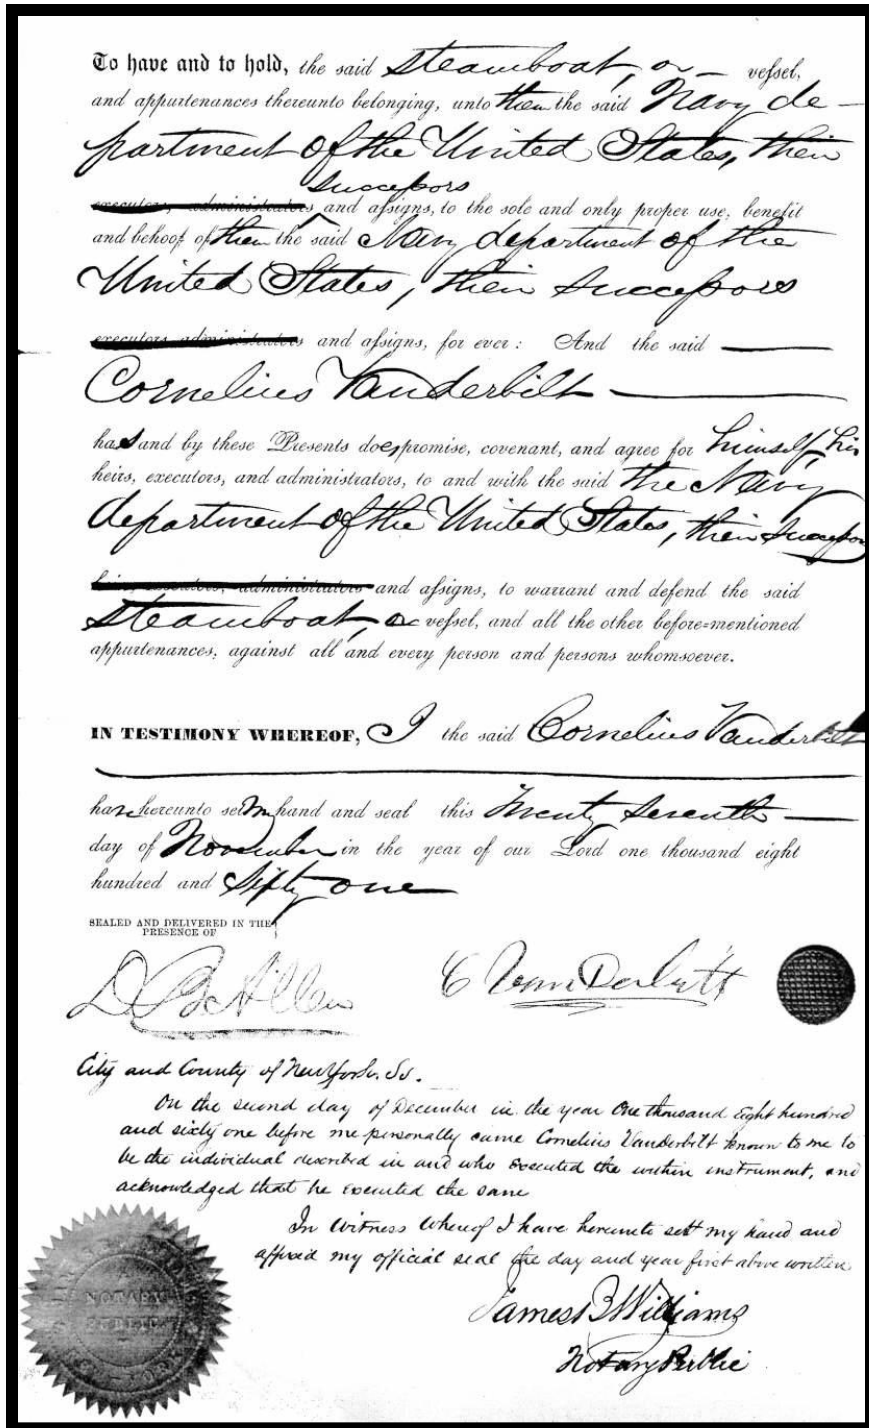 To have and to hold, the said steamboat, or — vessel,
and appurtenances thereunto belonging, unto them the said Navy de-
partment of the United States, their
successors
executors, administrators and assigns, to the sole and only proper use, benefit
and behoof of them the said Navy department of the
United States, their successors
executors administrators and assigns, for ever: And the said ——
Cornelius Vanderbilt ——
has and by these Presents does promise, covenant, and agree for himself, his
heirs, executors, and administrators, to and with the said the Navy
department of the United States, their successors
executors, administrators and assigns, to warrant and defend the said
steamboat, or vessel, and all the other before-mentioned
appurtenances, against all and every person and persons whomsoever.
IN TESTIMONY WHEREOF, I the said Cornelius Vanderbilt
have hereunto set my hand and seal this Twenty Seventh —
day of November in the year of our Lord one thousand eight
hundred and sixty one
SEALED AND DELIVERED IN THE
PRESENCE OF
D B Allen C Van Derbilt
City and County of New York. Ss.
On the second day of December in the year One thousand Eight hundred
and sixty one before me personally came Cornelius Vanderbilt known to me to
be the individual described in and who executed the within instrument, and
acknowledged that he executed the same
In Witness Whereof I have hereunto sett my hand and
affixed my official seal the day and year first above written
James B Williams
Notary Public
NOTARY
PUBLIC
NEW-YORK